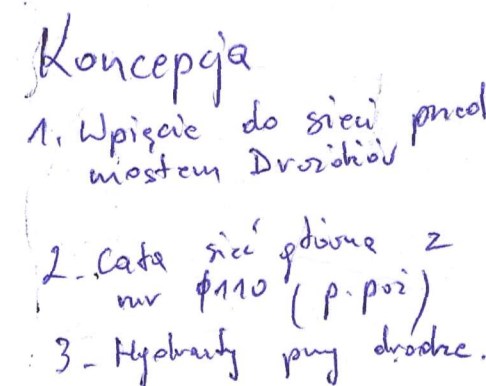 Koncepcja
1. Wpięcie do sieci przed
mostem Drożdżów
2. Cała sieć główna z
rur ϕ110 (p.poż)
3 - Hydranty przy dróżdze.